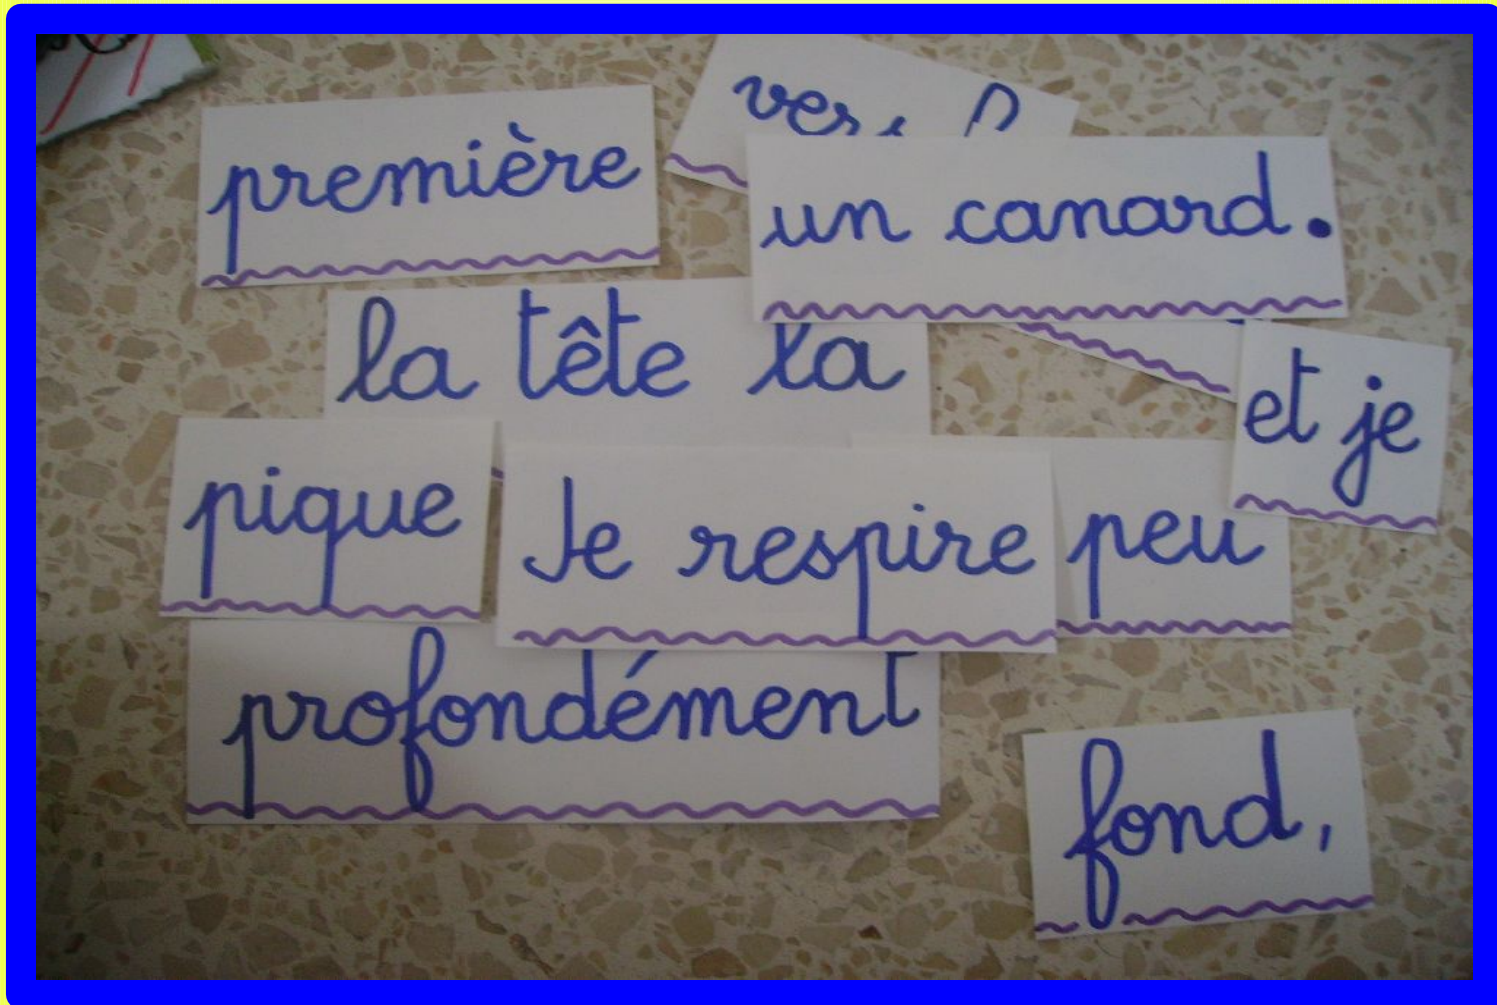 première
vers
un canard.
la tête la
et je
pique
Je respire
peu
profondément
fond,